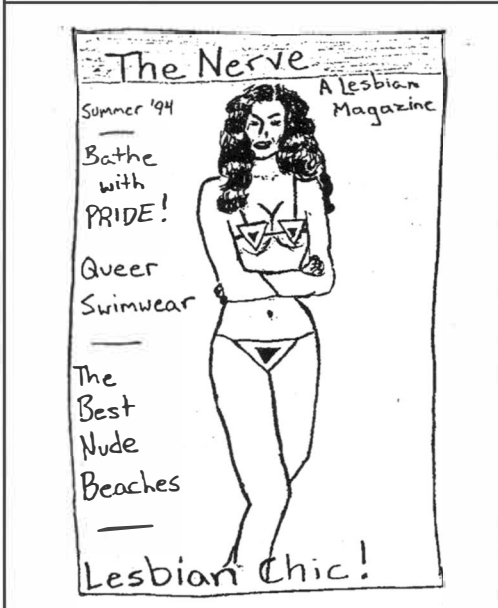 The Nerve
A Lesbian
Magazine
Summer '94
Bathe
with
PRIDE!
Queer
Swimwear
The
Best
Nude
Beaches
Lesbian Chic!